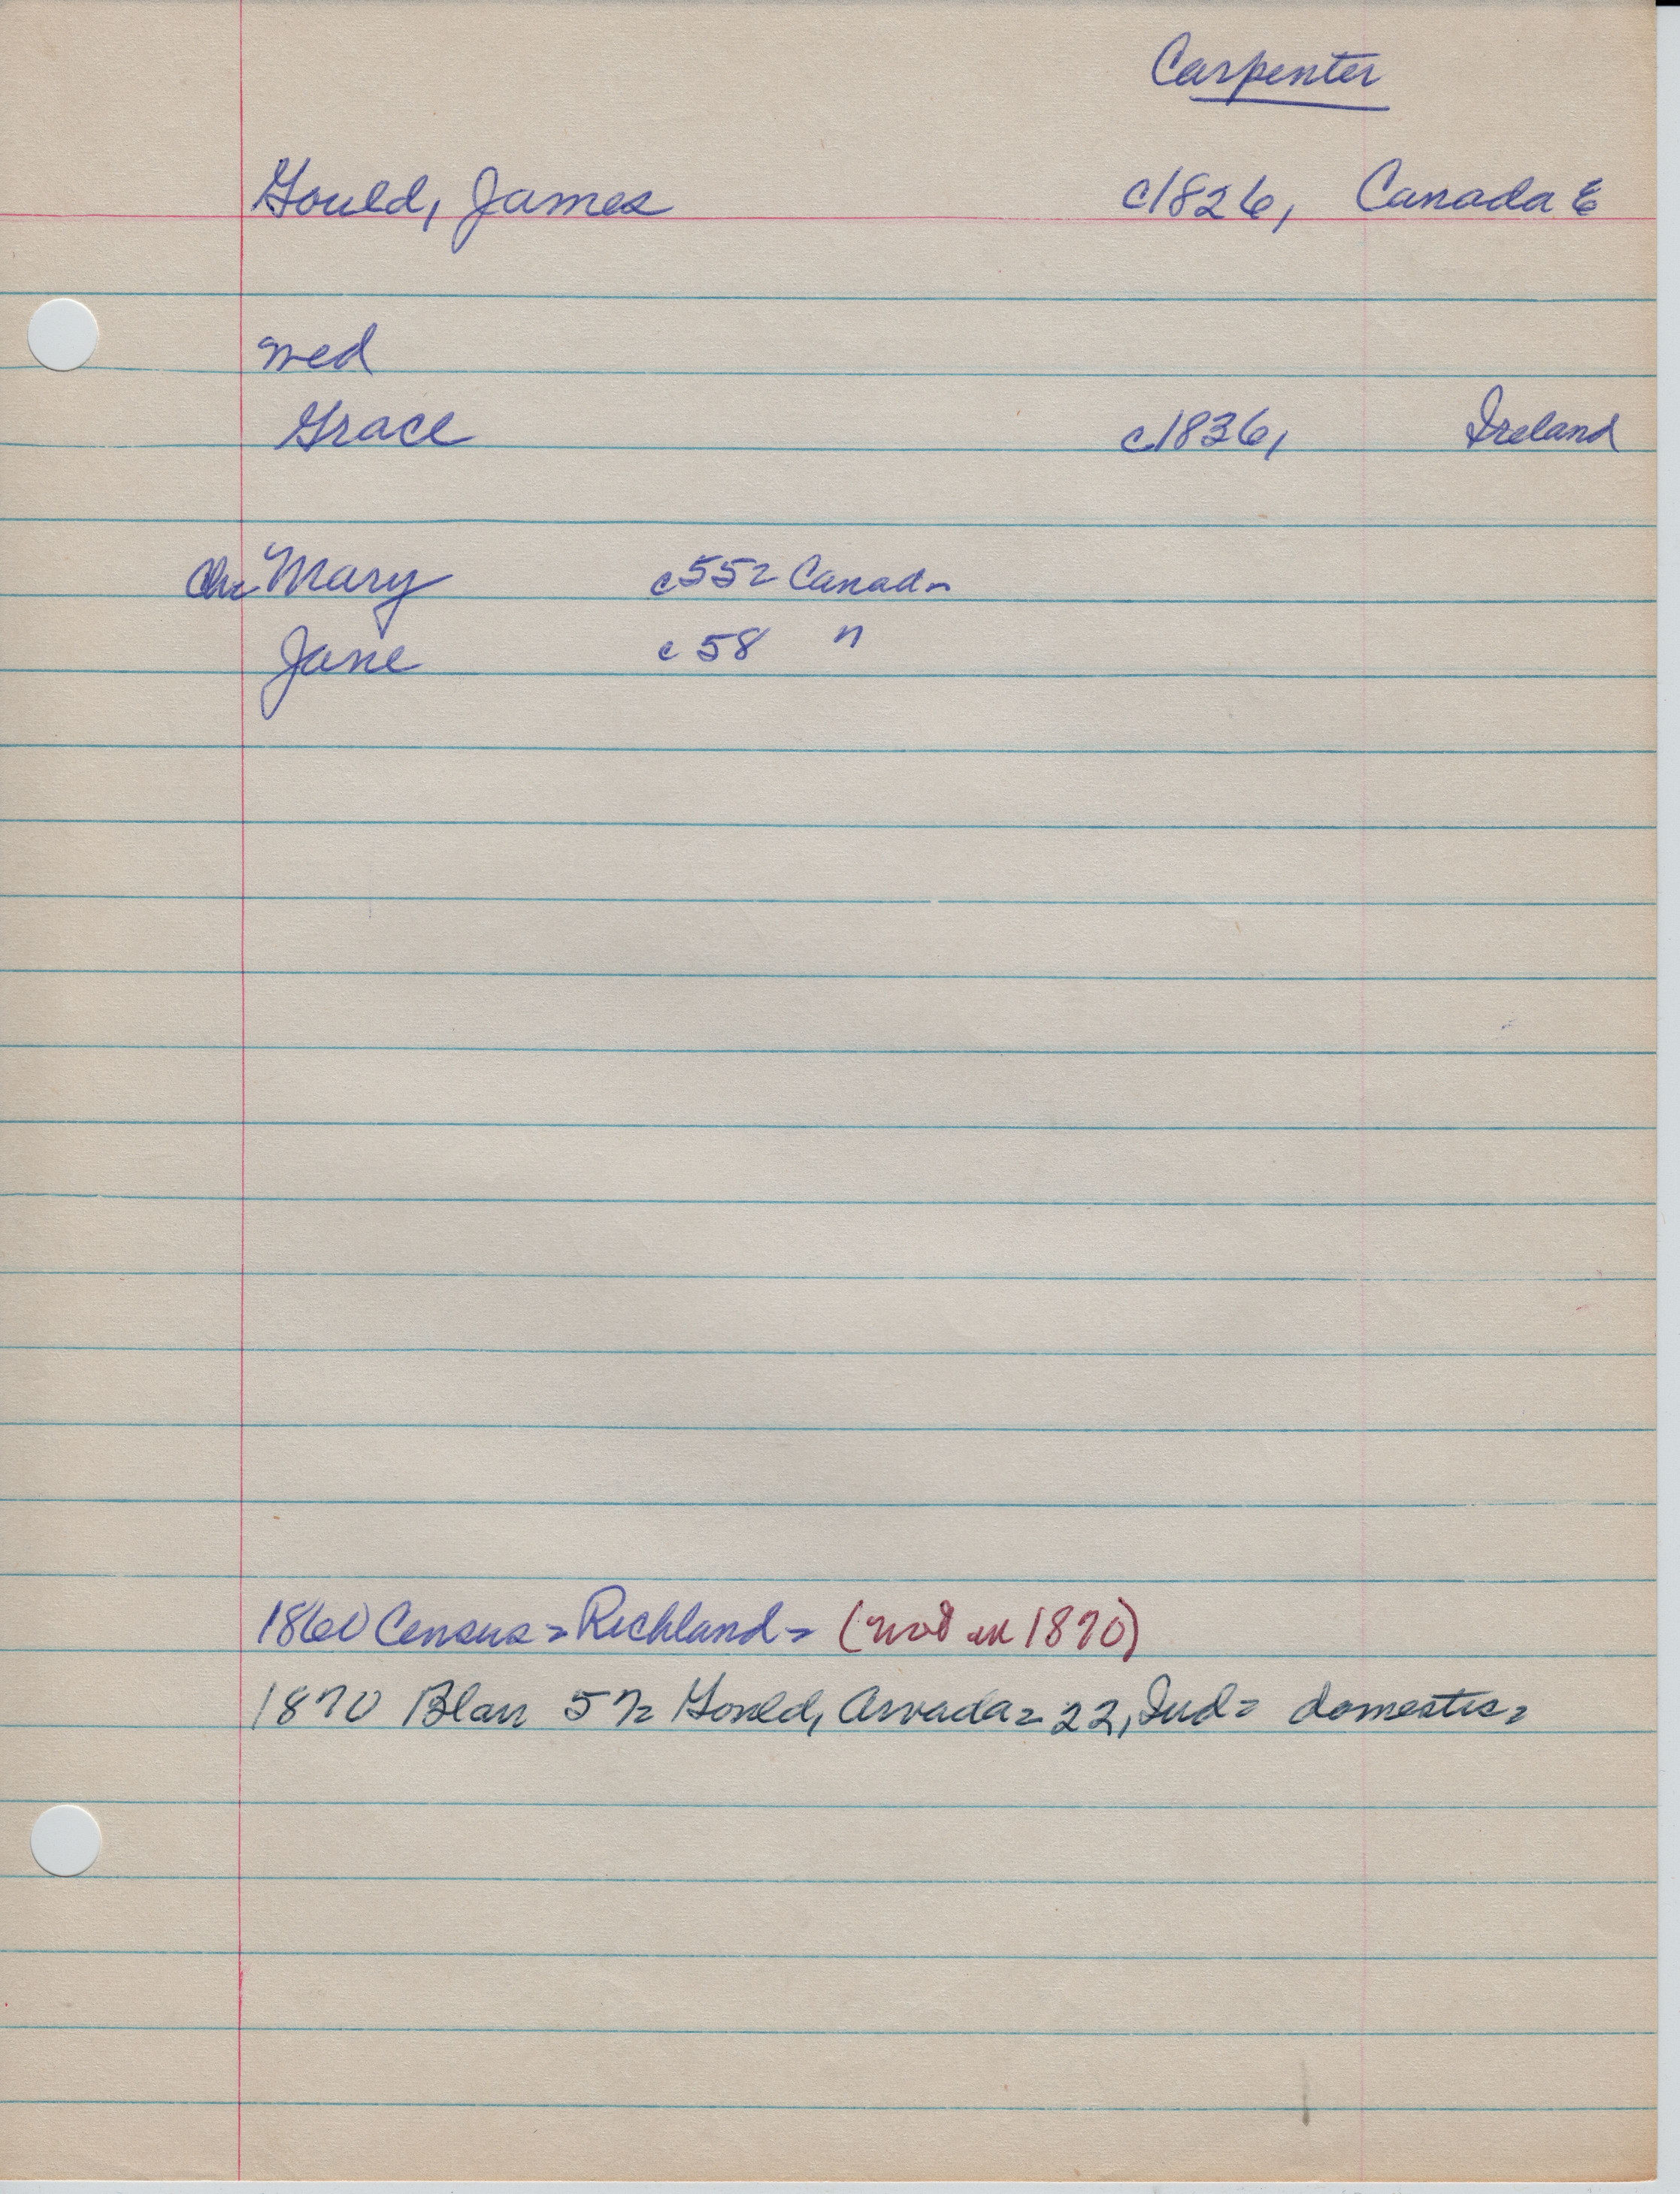 Carpenter
Gould, James c1826, Canada E
med
Grace c1836, Ireland
Ch= Mary c55= Canada
Jane c58 "
1860 Census = Richland = (not in 1870)
1870 Blair 57= Gould, Arvada = 22, Ind = domestic =